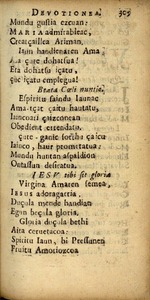 DEVOTIONEA. 305
Mundu gustia ezcuan:
MARIA admirableac,
Creatçaillea Ariman,
Iaun handienaren Ama,
çure dohatsu?
Eta dohatsu içatu,
içatu emplegua!
Beata Cœli nuntia.
Espiritu saindu Iaunac
Ama içatu
Ioncoari
Obedient
içate gante
Ialoco, haur promitatua:
Mundu huntan aspaldion
Ontassun desiratua.
IESU tibi sit gloria
Virgina Amaren semea,
IESUS adoragarria,
Duçula mende handian
Egun beçala gloria.
Gloria duçula bethi
Aita ceruetacoa:
Spiritu Iaun, bi Presunen
Fruitu Amoriozcoa